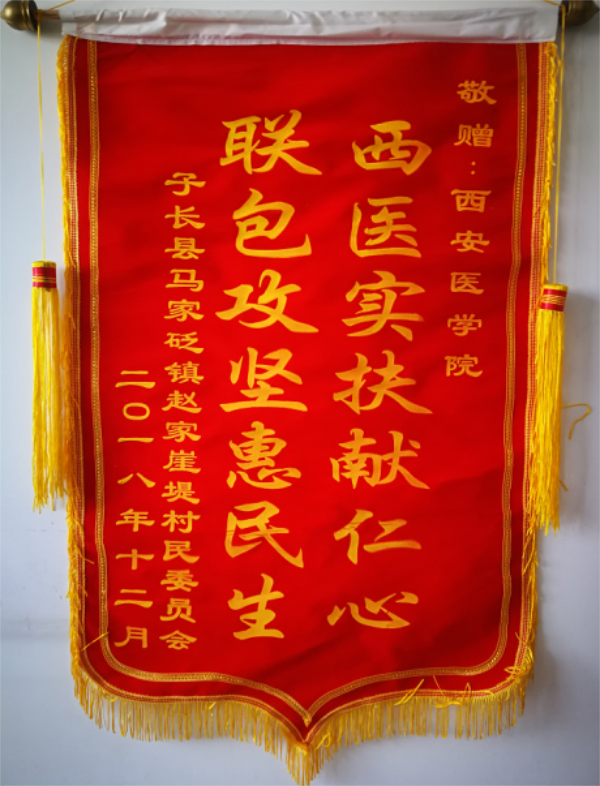 敬赠：西安医学院
西医实扶献仁心
联包攻坚惠民生
子长县马家砭镇赵家崖堤村民委员会
二〇一八年十二月